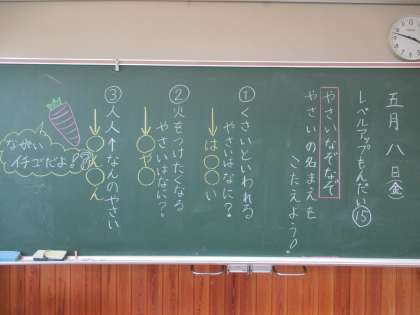 五月八日(金)
レベルアップもんだい⑮
やさいなぞなぞ
やさいの名まえを
こたえよう!
①くさいといわれる
やさいはなに?
は○○い
②火をつけたくなる
やさいはなに?
○や○
③人人↑なんのやさい
○ん○ん
ながい
イチゴだよ!